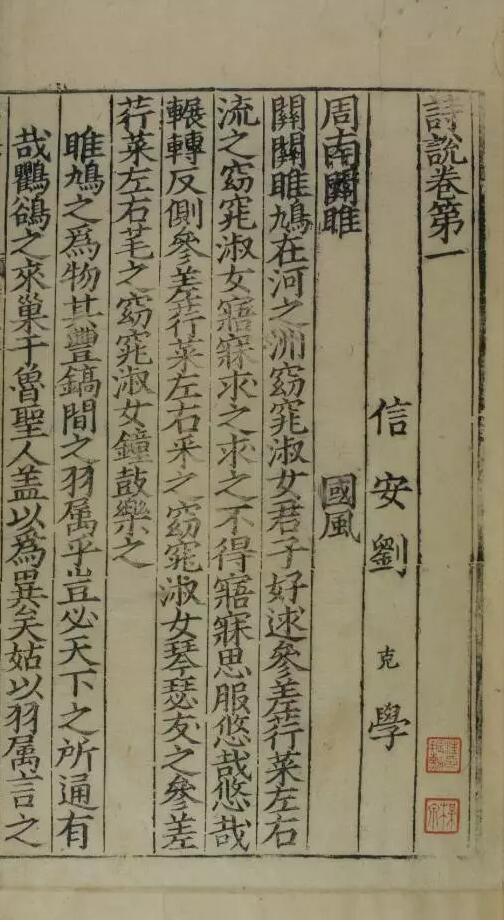 詩說卷第一
信安劉克學
周南關雎 國風
關關雎鳩在河之洲窈窕淑女君子好逑參差荇菜左右
流之窈窕淑女寤寐求之求之不得寤寐思服悠哉悠哉
輾轉反側參差荇菜左右采之窈窕淑女琴瑟友之參差
荇菜左右芼之窈窕淑女鐘鼓樂之
雎鳩之爲物其豐鎬間之羽属乎豈必天下之所通有
哉鸜鵒之來巢于魯聖人盖以爲異矣姑以羽属言之